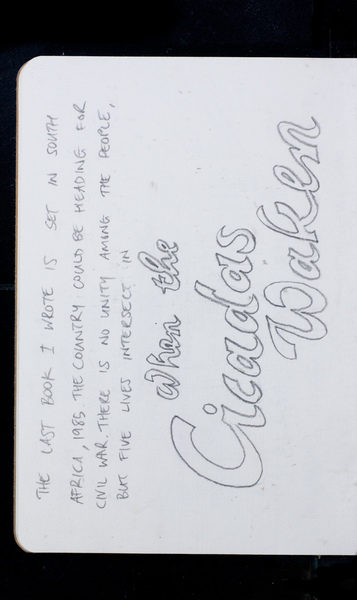 THE LAST BOOK I WROTE IS SET IN SOUTH
AFRICA, 1985, THE COUNTRY COULD BE HEADING FOR
CIVIL WAR. THERE IS NO UNITY AMONG THE PEOPLE,
BUT FIVE LIVES INTERSECT IN
When the
Cicadas
Waken